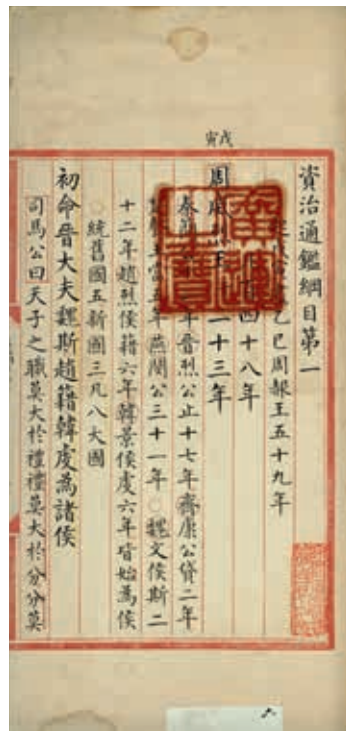 戊寅
資治通鑑綱目第一
乙巳周赧王五十九年
四十八年
周威烈王二十三年
秦簡年晉烈公止十七年齊康公貸二年
王當五年燕閔公三十一年○魏文侯斯二
十二年趙烈侯籍六年韓景侯虔六年皆始為侯
○統舊國五新國三凡八大國
初命晉大夫魏斯趙籍韓虔為諸侯
司馬公曰天子之職莫大於禮禮莫大於分分莫
廣運之寶